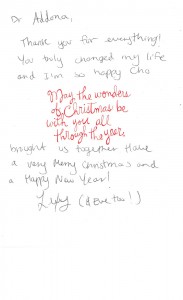 Dr Addona,
Thank you for everything!
You truly changed my life
and I'm so happy Cha
May the wonders
of Christmas be
with you all
through the year.
brought us together. Have
a very Merry Christmas and
a Happy New Year!
(& Eve too!)